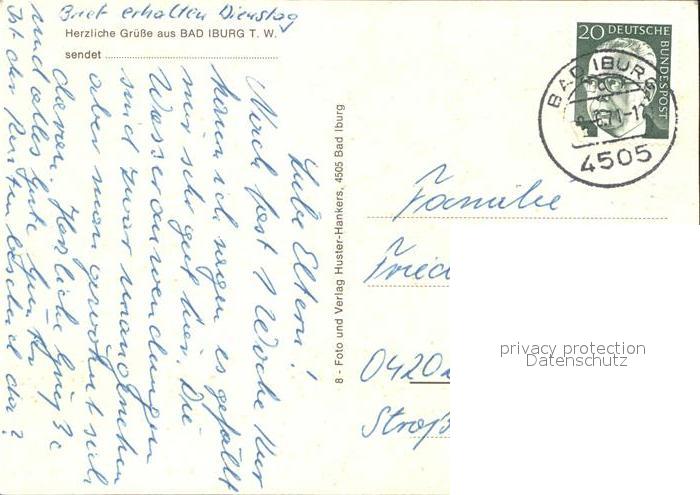 Brief erhalten Dienstag
Herzliche Grüße aus BAD IBURG T. W.
sendet
Liebe Eltern!
Nach fast 1 Woche Kur
kann ich sagen es gefällt
mir sehr gut hier. Die
Wasseranwendungen
sind zwar unangenehm
aber man gewöhnt sich
daran. Herzliche Grüße
und alles Gute Günter
Ist der Rentenbescheid da?
8 - Foto und Verlag Huster-Hankers, 4505 Bad Iburg
20 DEUTSCHE
BUNDESPOST
BAD IBURG
4505
Familie
Fried
0420
Straß
privacy protection
Datenschutz